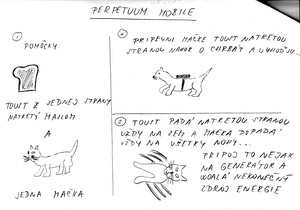 PERPETUUM MOBILE
1
POMÔCKY:
TOUST Z JEDNEJ STRANY
NATRETÝ MASLOM
A
JEDNA MAČKA
PRIPEVNI MAČKE TOUST NATRETOU
STRANOU NAHOR O CHRBÁT A VYHOĎ JU...
TOUST PADÁ NATRETOU STRANOU
VŽDY NA ZEM A MAČKA DOPADÁ
VŽDY NA VŠETKY NOHY...
PRIPOJ TO NEJAK
NA GENERÁTOR A
NEKONEČNÝ
ZDROJ ENERGIE